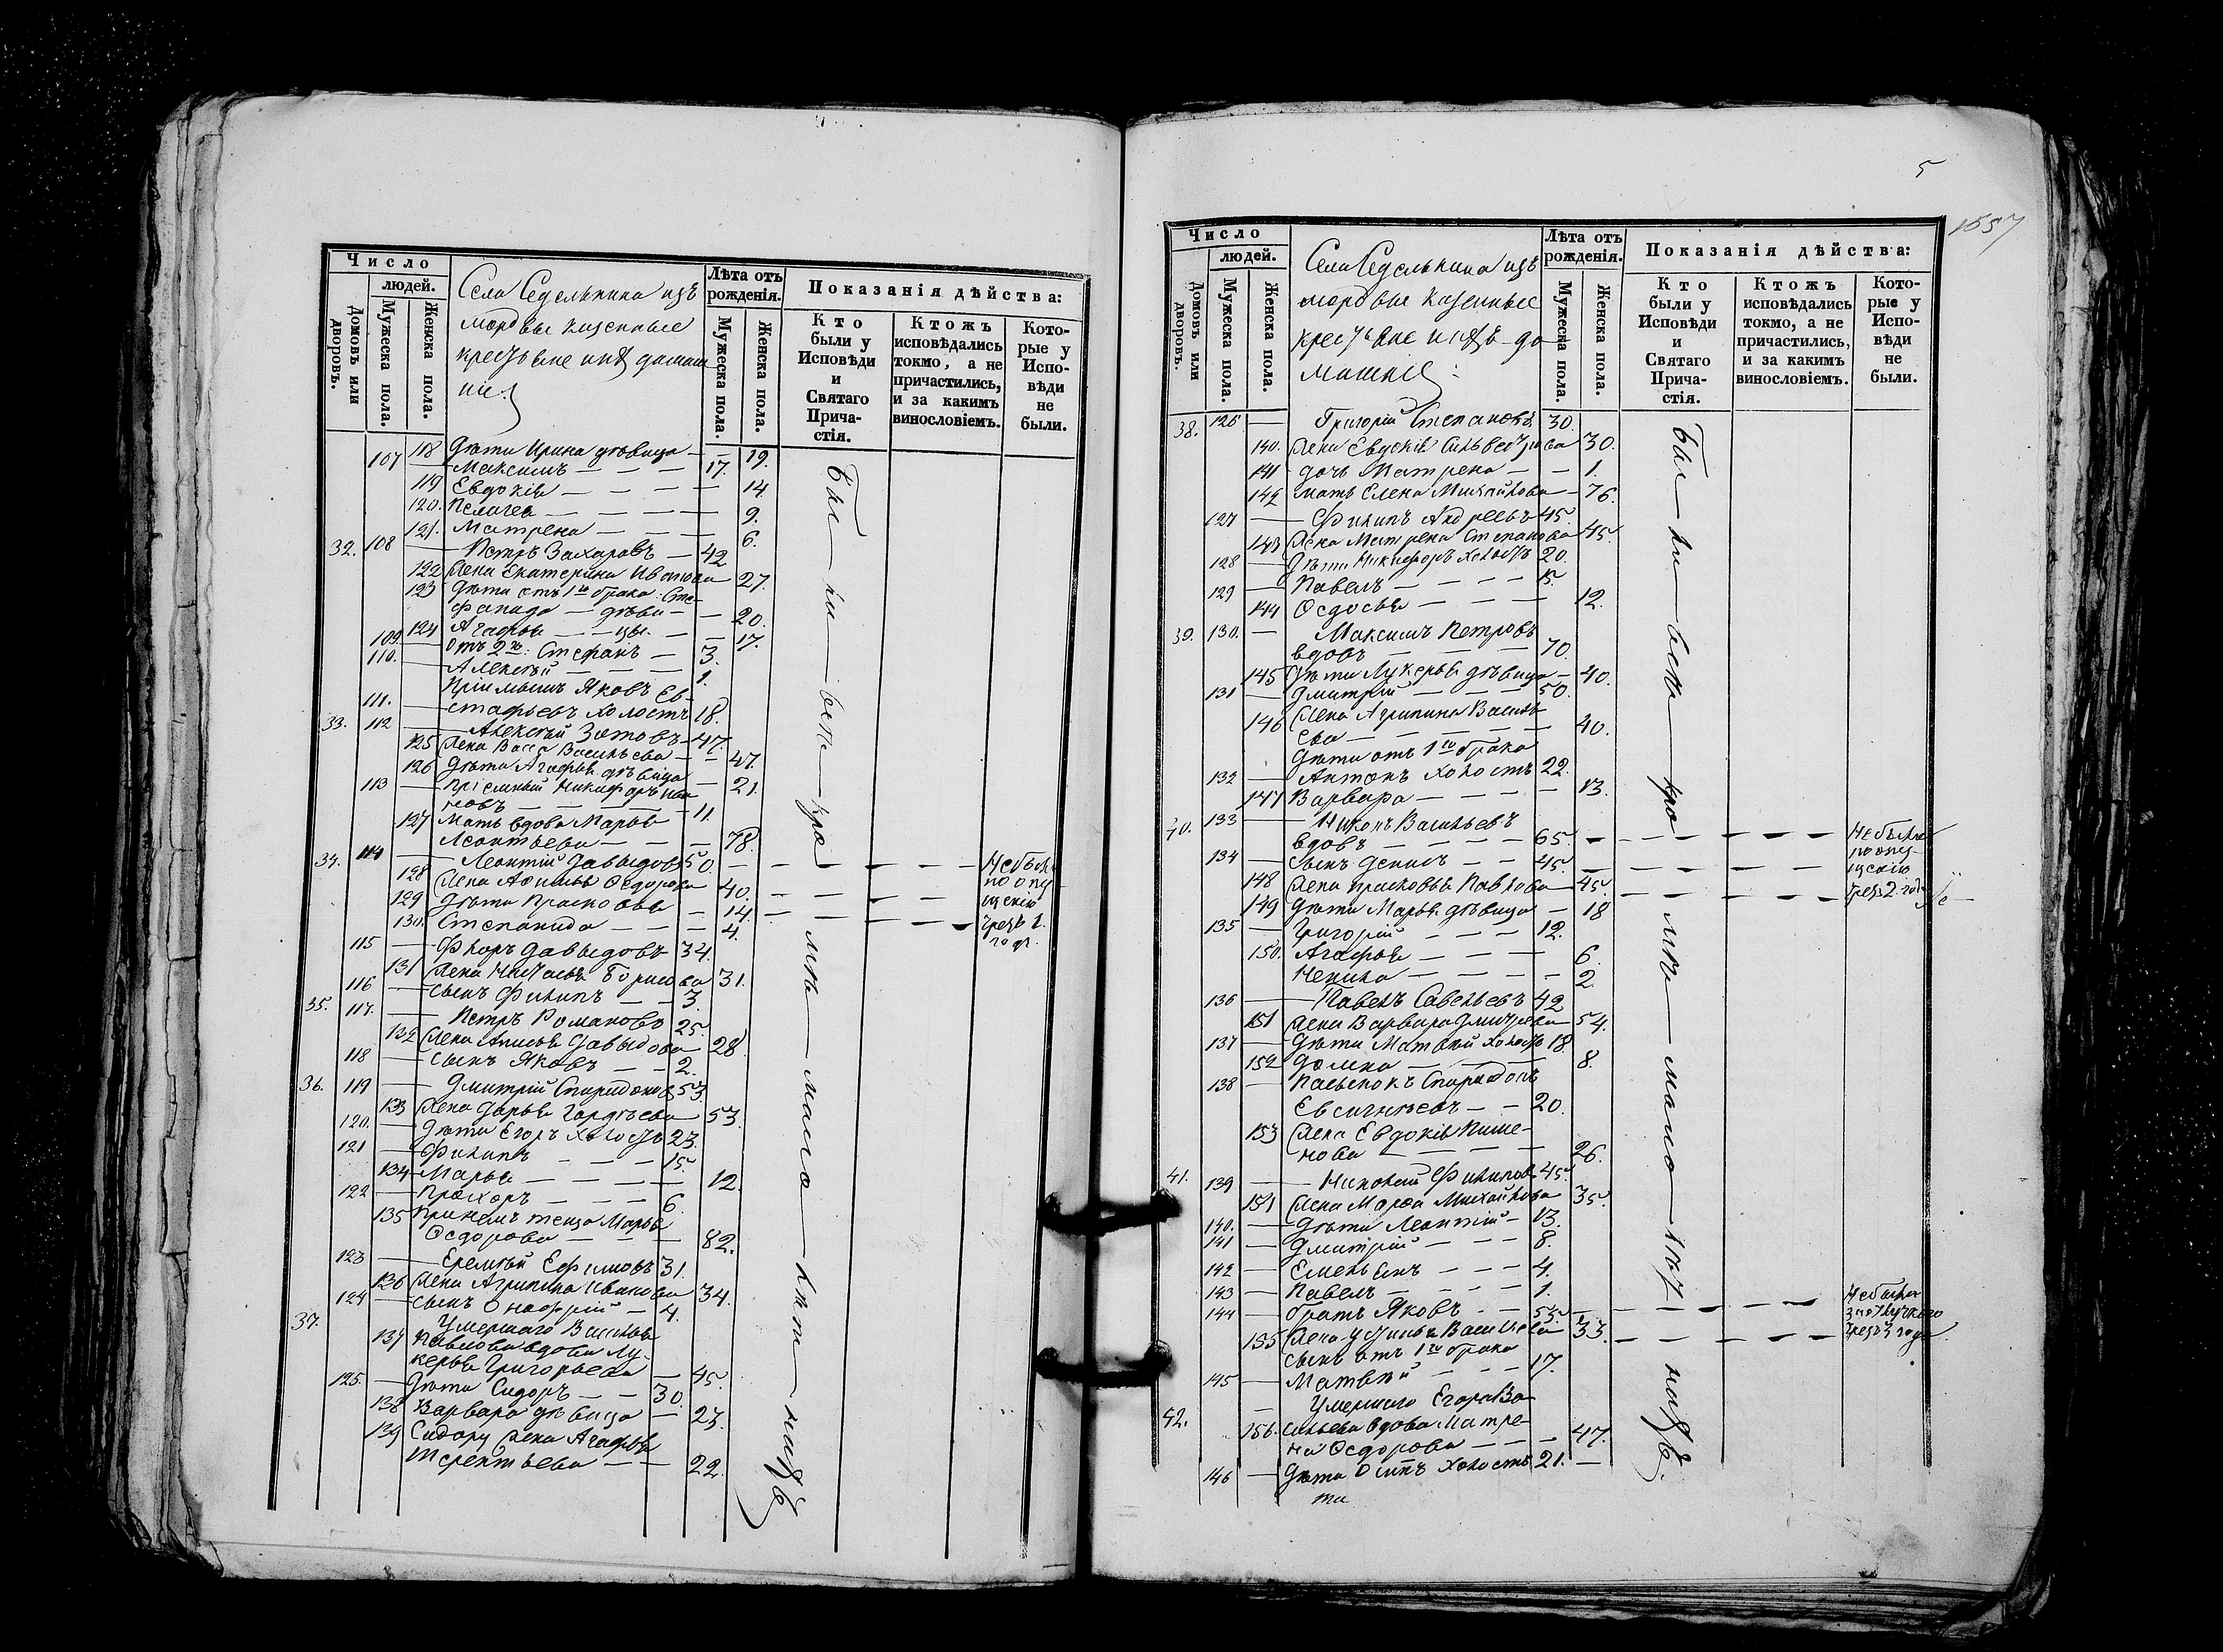 Число
людей.
Домовъ или дворовъ.
Мужеска пола.
Женска пола.
Села Седелькина изъ
мордвы казенные
крестьяне и ихъ домаш
ніе.
Лѣта отъ
рожденія.
Мужеска пола.
Женска пола.
Показанія дѣйства:
Кто
были у
Исповѣди
и
Святаго
Прича-
стія.
Ктожъ
исповѣдались
токмо, а не
причастились,
и за какимъ
винословіемъ.
Кото-
рые у
Испо-
вѣди
не
были.
118 Дѣти Ирина дѣвица — 19.
107 — Максимъ — — — 17.
119 Евдокія — — — — 14
120. Пелагея — — — — 9.
121. Матрена — — — 6.
32. 108 — Петръ Захаровъ — 42
122 Жена Екатерина Иванова 27.
123 Дѣти отъ 1го брака: Сте-
фанида — дѣви — — 20.
124 Агафья — — цы. — — 17.
109. — Отъ 2го: Стефанъ — 3.
110. — Алексѣй — — — 1.
Пріимышъ Яковъ Ев-
111. — стафьевъ холостъ 18.
33. 112 — Алексѣй Зотовъ — 47.
125 Жена Васса Васильева — — 47.
126 Дѣти Агафья дѣвица — 21.
113 — Пріемный Никифоръ Ива
новъ — — — — 11.
127 Мать вдова Марья
Леонтьева — — — 78.
34. 114 — Леонтій Давыдовъ 50. — — — — Не были
128 Жена Афимья Ѳедорова 40. — — — — по опу-
129 Дѣти Прасковья — 14. — — — — щенію
130. Степанида — — — 4. чрезъ 1.
годъ.
115 — Флоръ Давыдовъ 34.
131 Жена Настасья Борисова 31.
116 — сынъ Филипъ — — 3.
35. 117. — Петръ Романовъ 25.
132 Жена Анисья Давыдова 28.
118 — сынъ Яковъ — — 2.
36. 119 — Дмитрій Спиридоновъ 53.
133 Жена Дарья Гордѣева 53.
120. — Дѣти Егоръ холостъ 23.
121 — Филипъ — — — 15.
134 Марья — — — — 12.
122 — Прохоръ — — — 6.
135 При немъ теща Марья
Ѳедорова — — — 82.
123 — Еремѣй Ефимовъ 31.
136 Жена Агрипина Иванова 34.
124 — сынъ Онофрій — 4.
37. Умершаго Василья
137 Павлова вдова Лу-
керья Григорьева — 45.
125. — Дѣти Сидоръ — — 30.
138 Варвара дѣвица — 23.
139 Сидору жена Агафья
Терентьева — — 22.
Бы — ли — всѣ — кро — мѣ — мало — лѣт — нихъ
5
1657
Число
людей.
Домовъ или дворовъ.
Мужеска пола.
Женска пола.
Села Седелькина изъ
мордвы казенные
крестьяне и ихъ до-
машніе:
Лѣта отъ
рожденія.
Мужеска пола.
Женска пола.
Показанія дѣйства:
Кто
были у
Исповѣди
и
Святаго
Прича-
стія.
Ктожъ
исповѣдались
токмо, а не
причастились,
и за какимъ
винословіемъ.
Кото-
рые у
Испо-
вѣди
не
были.
38. 126 — Григорій Степановъ 30.
140. Жена Евдокія Сильвестрова 30.
141 дочь Матрена — — 1.
142 мать Елена Михайлова — 76.
127 — Филипъ Андреевъ 45.
143 Жена Матрена Степанова 45.
128 — Дѣти Никифоръ холостъ 20.
129 — Павелъ — — — 15.
144 Ѳедосья — — — 12.
39. 130. — Максимъ Петровъ
вдовъ — — — 70.
145 Дѣти Лукерья дѣвица — 40.
131 — Дмитрій — — — 50.
146 Жена Агрипина Василь-
ева — — — — 40.
Дѣти отъ 1го брака
132 — Антонъ холостъ 22.
147 Варвара — — — — 13.
40. 133 — Никонъ Васильевъ
вдовъ — — — — 65. — — — — Не были
134 — Сынъ Денисъ — — 45. — — — — по опу-
щенію
148 Жена Прасковья Павлова 45. — — — — чрезъ 2. года
149 Дѣти Марья дѣвица — 18
135 — Григорій — — — 12.
150. Агафья — — — 6.
Ненила — — — — 2.
136 — Павелъ Савельевъ 42
151 Жена Варвара Дмитрева 54.
137 — Дѣти Матвѣй холостъ 18.
152 Домна — — — 8.
138 — Пасынокъ Спиридонъ
Евсигнѣевъ — — 20.
153 Жена Евдокія Пиме-
нова — — — — 26.
41. 139 — Николай Филиповъ 45.
154 Жена Марѳа Михайлова 35.
140. — Дѣти Леонтій — 13.
141 — Дмитрій — — — 8.
142 — Емельянъ — — — 4.
143 — Павелъ — — — 1.
144 — братъ Яковъ — — 53. — — — — Не были
за отлучкою
155 Жена Устинья Васильева 33. — — — — чрезъ 3 года.
сынъ отъ 1го брака
145 — Матвѣй — — — 17.
— Умершаго Егора Ва-
42. 156. сильева вдова Матре-
на Ѳедорова — — — 47.
146 — Дѣти Осипъ холостъ 21. —
ти
Бы — ли — всѣ — кро — мѣ — мало — лѣт — нихъ.